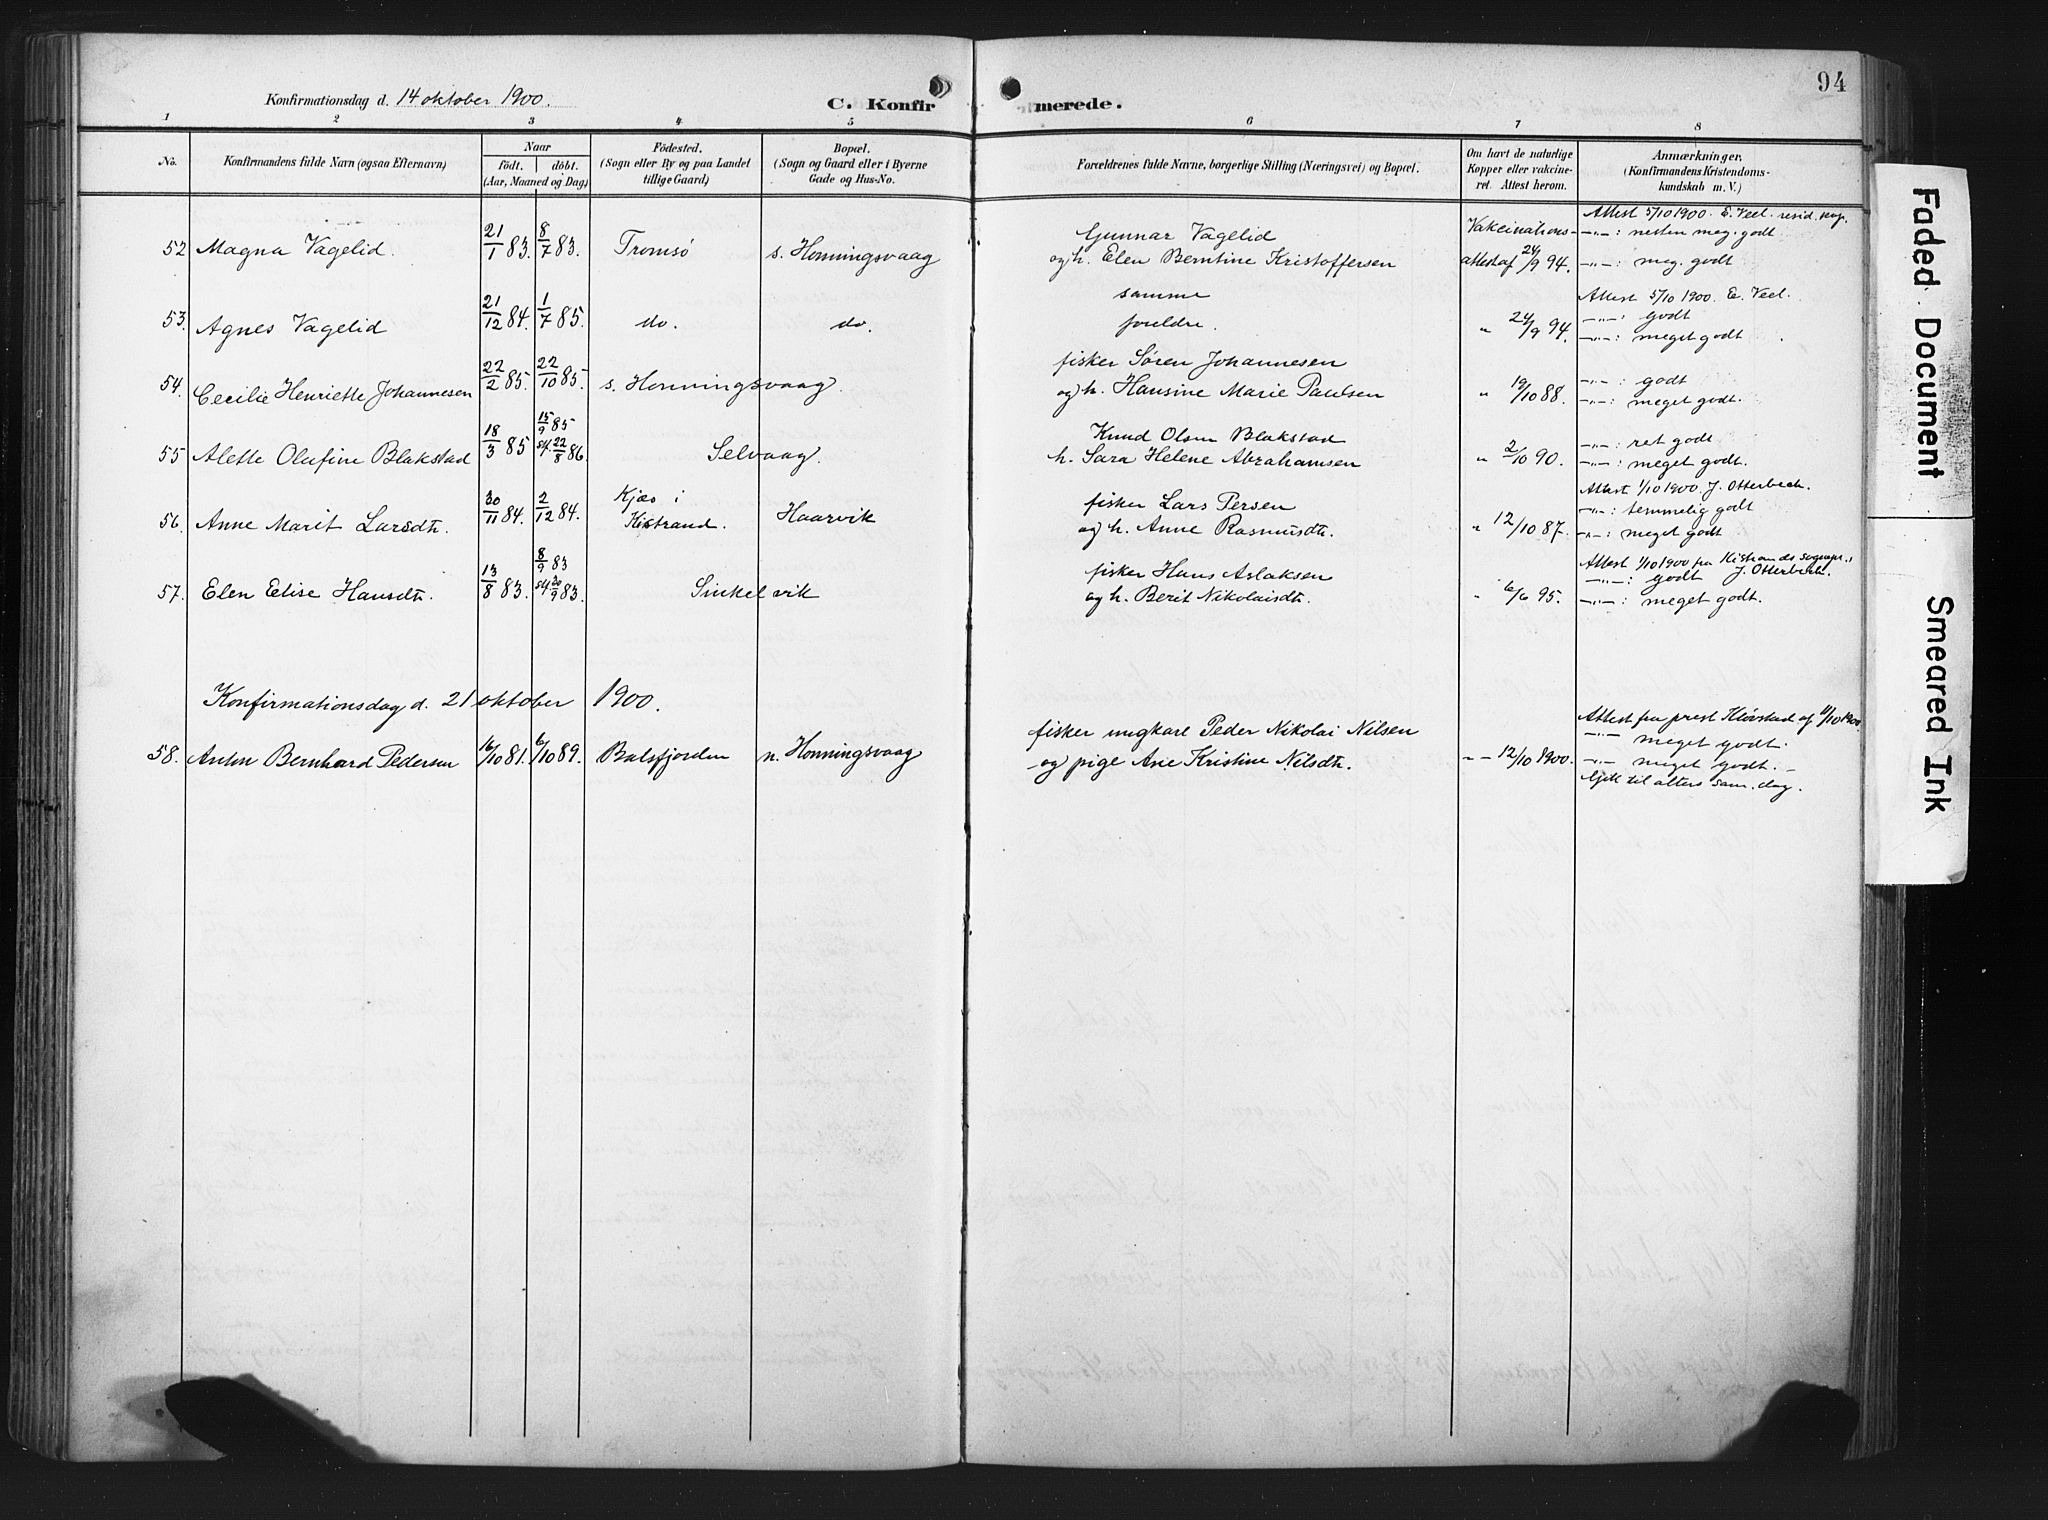 94
Konfirmationsdag d. 14 oktober 1900.
C. Konfirmerede.
1 2 3 4 5 6 7 8
No.
Konfirmandens fulde Navn (ogsaa Efternavn)
Naar
født. døbt.
(Aar, Maaned og Dag)
Fødested.
(Sogn eller By og paa Landet
tillige Gaard)
Bopæl.
(Sogn og Gaard eller i Byerne
Gade og Hus-No.
Forældrenes fulde Navne, borgerlige Stilling (Næringsvei) og Bopæl.
Om havt de naturlige
Kopper eller vakcine-
ret. Attest herom.
Anmærkninger.
(Konfirmandens Kristendoms-
kundskab m. V.)
52 Magna Vagelid. 21/1 83. 8/7 83. Tromsø s. Honningsvaag
Gunnar Vagelid
og h. Elen Berntine Kristoffersen
Vakcinations-
attest af 24/9 94.
Attest 5/10 1900. E. Veel. resid. kap.
-"-: nesten meg. godt
-"-: meg. godt
53. Agnes Vagelid 21/12 84. 1/7 85. do. do.
samme
foreldre.
" 24/9 94.
Attest 5/10 1900. E. Veel.
-"-: godt
-"-: meget godt
54. Cecilie Henriette Johannesen 22/2 85. 22/10 85. s. Honningsvaag.
fisker Søren Johannesen
og h. Hansine Marie Paulsen
" 19/10 88.
-"-: godt
-"-: meget godt.
55 Alette Olufine Blakstad 18/3 85 15/9 85 st. 22/8 86. Selvaag.
Knud Olsen Blakstad
h. Sara Helene Abrahamsen
" 2/10 90.
-"-: ret godt
-"-: meget godt.
56. Anne Marit Larsdt. 30/11 84. 2/12 84. Kjæs i Kistrand. Haarvik
fisker Lars Persen
og h. Anne Rasmusdt.
" 12/10 87.
Attest 1/10 1900. J. Otterbech.
-"-: temmelig godt
-"-: meget godt
57. Elen Elise Hansdt. 13/8 83. 8/9 83 st. 30/9 83. Sinkelvik
fisker Hans Aslaksen
og h. Berit Nikolaisdt.
" 6/6 95.
Attest 1/10 1900 fra Kistrands sognepr.
-"-: godt J. Otterbech.
-"-: meget godt.
Konfirmationsdag d. 21 oktober 1900.
58. Anton Bernhard Pedersen 16/10 81. 6/10 89. Balsfjorden n. Honningsvaag
fisker ungkarl Peder Nikolai Nilsen
og pige Ane Kristine Nilsdt.
" - 12/10 1900.
Attest fra prest Kløvstad af 11/10 1900
-"- meget godt.
-"-: meget godt. -
Gjek til alters sam. dag.
Faded Document
Smeared Ink